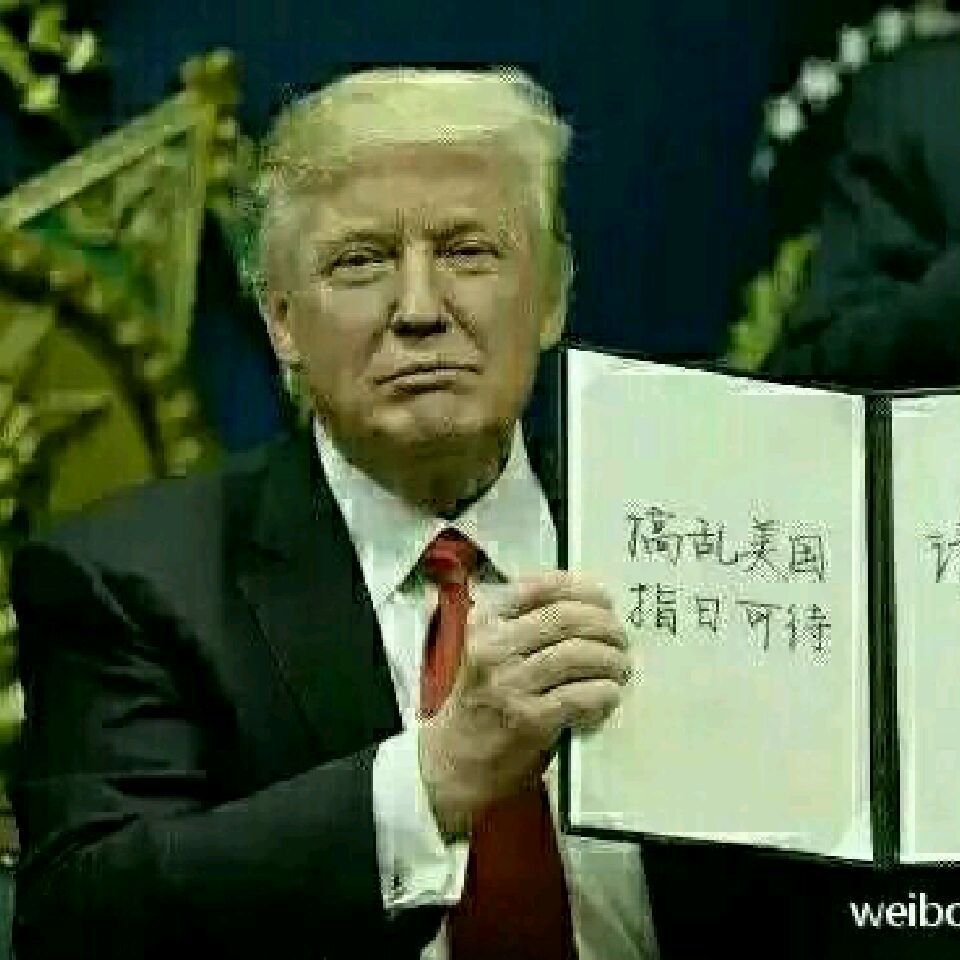 搞乱美国
指日可待
weibo